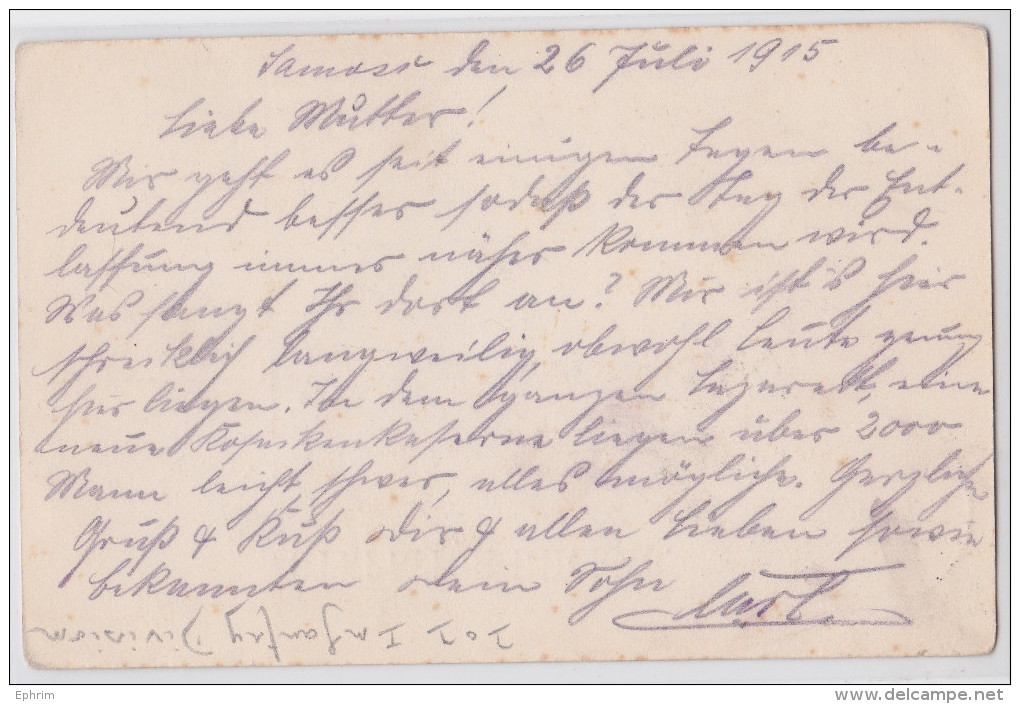 Samosc den 26 Juli 1915
Liebe Mutter!
Mir geht es seit einigen Tagen be-
deutend besser sodaß der Tag der Ent-
lassung immer näher kommen wird.
Was fangt Ihr dort an? Mir ist's hier
schrecklich langweilig, obwohl Leute genug
hier liegen. In dem ganzen Lazarett, eine
neue Kosakenkaserne liegen über 2000
Mann leicht, schwer, alles mögliche. Herzliche
Gruß & Kuß dir & allen Lieben sowie
bekannten dein Sohn
Carl
101 Infantry Division
Ephrim
delcampe.net